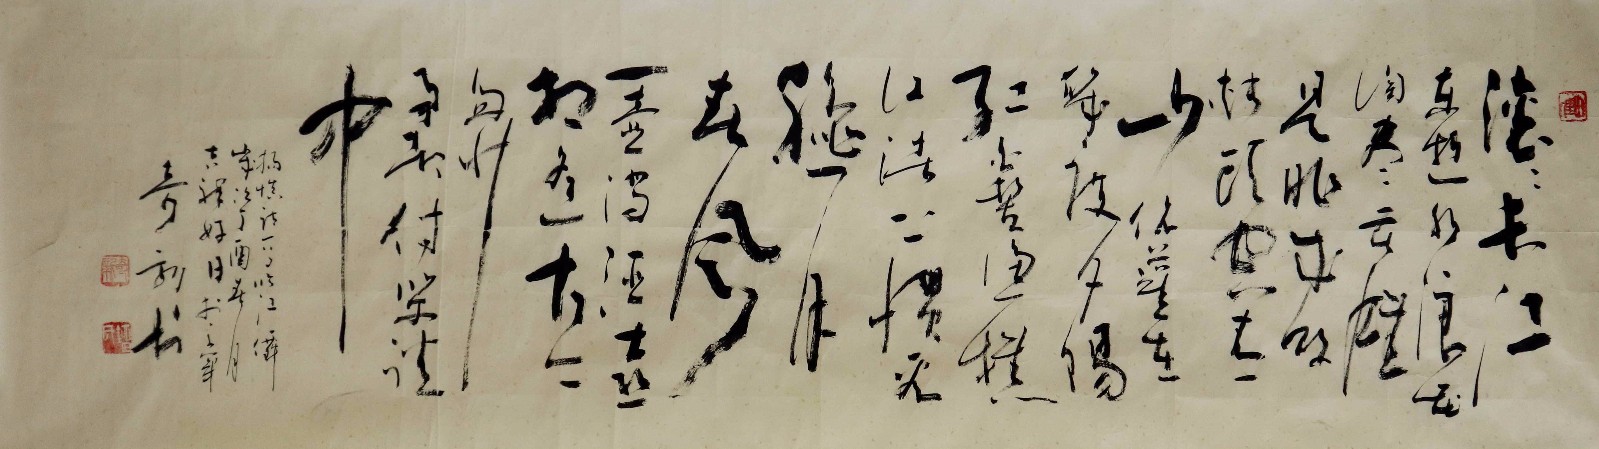 滚滚长江
东逝水浪花
淘尽英雄
是非成败
转头空青
山依旧在
几度夕阳
红白发渔樵
江渚上惯看
秋月
春风
一壶浊酒喜
相逢古今
多少
事都付笑谈
中
杨慎词一首临江仙
岁次丁酉年月
吉祥好日于